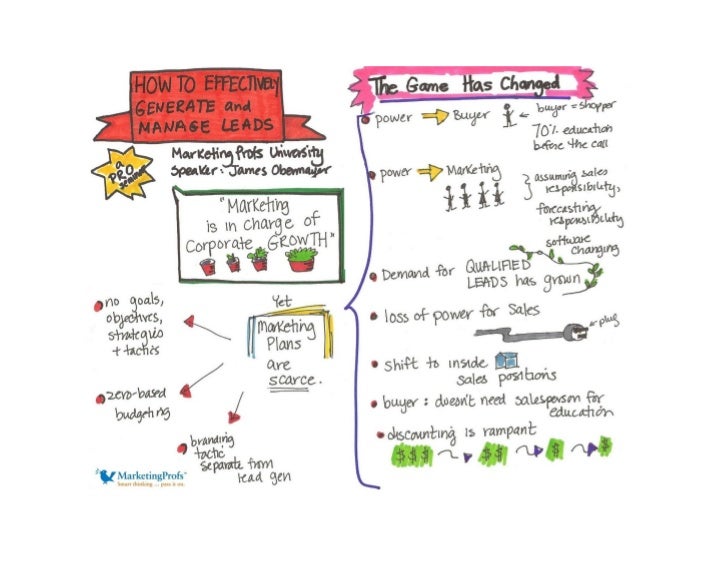 HOW TO EFFECTIVELY
GENERATE and
MANAGE LEADS
a
PRO
seminar
Marketing Profs University
Speaker: James Obermayer
"Marketing
is in charge of
Corporate GROWTH"
Yet
Marketing
Plans
are
scarce.
no goals,
objectives,
strategies
+ tactics
zero-based
budgeting
branding
tactic
separate from
lead gen
MarketingProfs
Smart thinking ... pass it on.
The Game Has Changed
power
Buyer
buyer = shopper
70% education
before the call
power
Marketing
assuming sales
responsibility,
forecasting
responsibility
software
changing
Demand for QUALIFIED
LEADS has grown
loss of power for Sales
plug
shift to inside
sales positions
buyer: doesn't need salesperson for
education
discounting is rampant
$$$ $$ $ $